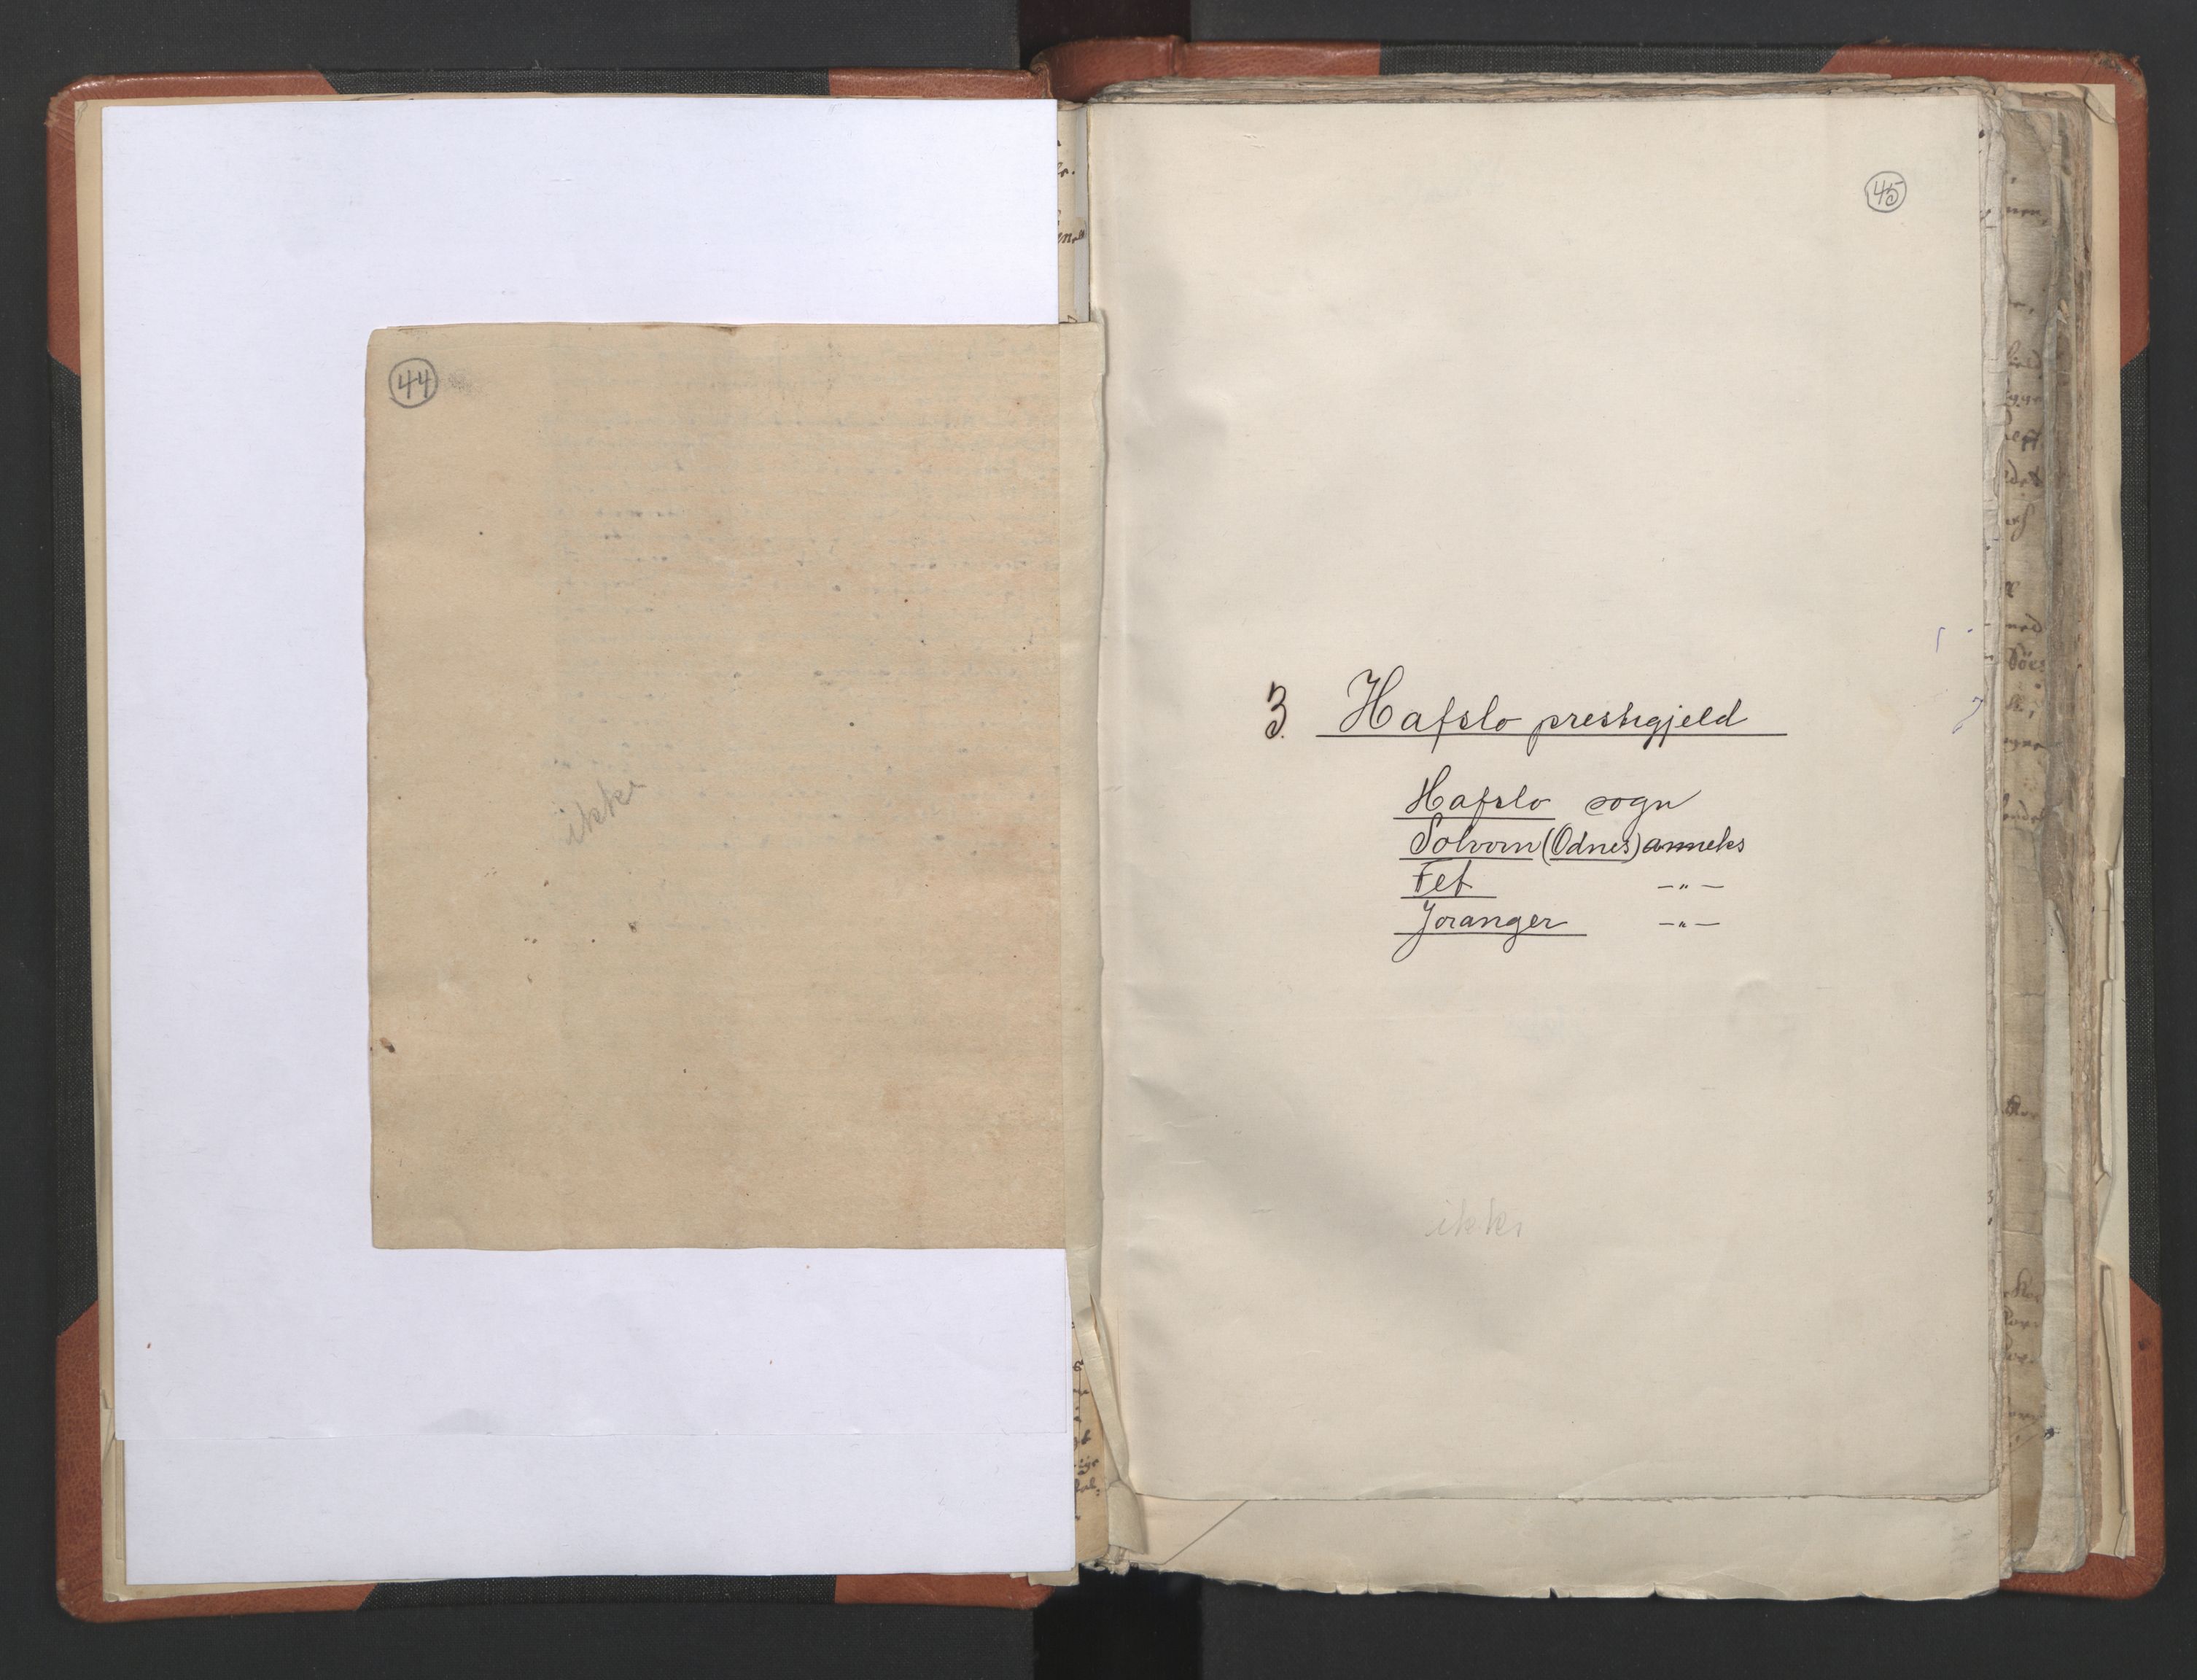 44
ikke
45
3. Hafslo prestegjeld
Hafslo sogn
Solvorn (Odnes) anneks
Fet —„—
Joranger —„—
ikke